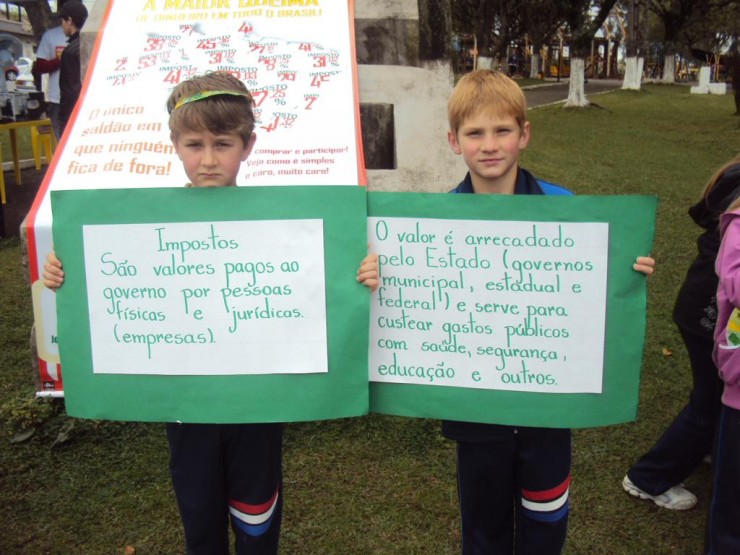 A MAIOR QUEIMA
DE DINHEIRO EM TODO O BRASIL!
IMPOSTO
IMPOSTO
IMPOSTO
O único
saldão em
que ninguém
fica de fora!
comprar e participar!
Veja como é simples
e caro, muito caro!
Impostos
São valores pagos ao
governo por pessoas
físicas e jurídicas.
(empresas).
O valor é arrecadado
pelo Estado (governos
municipal, estadual e
federal) e serve para
custear gastos públicos
com saúde, segurança,
educação e outros.